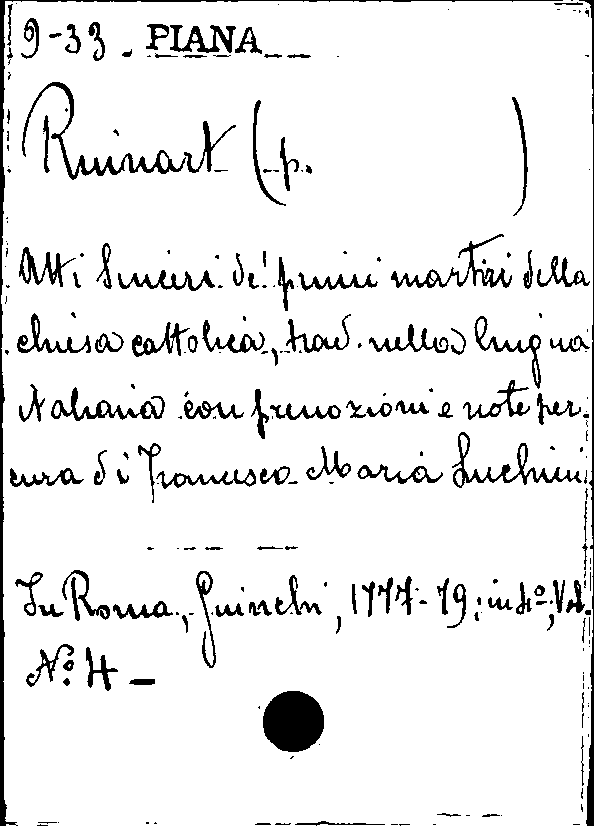 9-33 - PIANA
Ruinart (p. )
Atti Sinceri de' primi martiri della
chiesa cattolica, trad. nella lingua
italiana con prenozioni e note per
cura di Francesco Maria Luchini.
In Roma, Quinchi, 1777-79; in 4º, Vol.
Nº 4 -